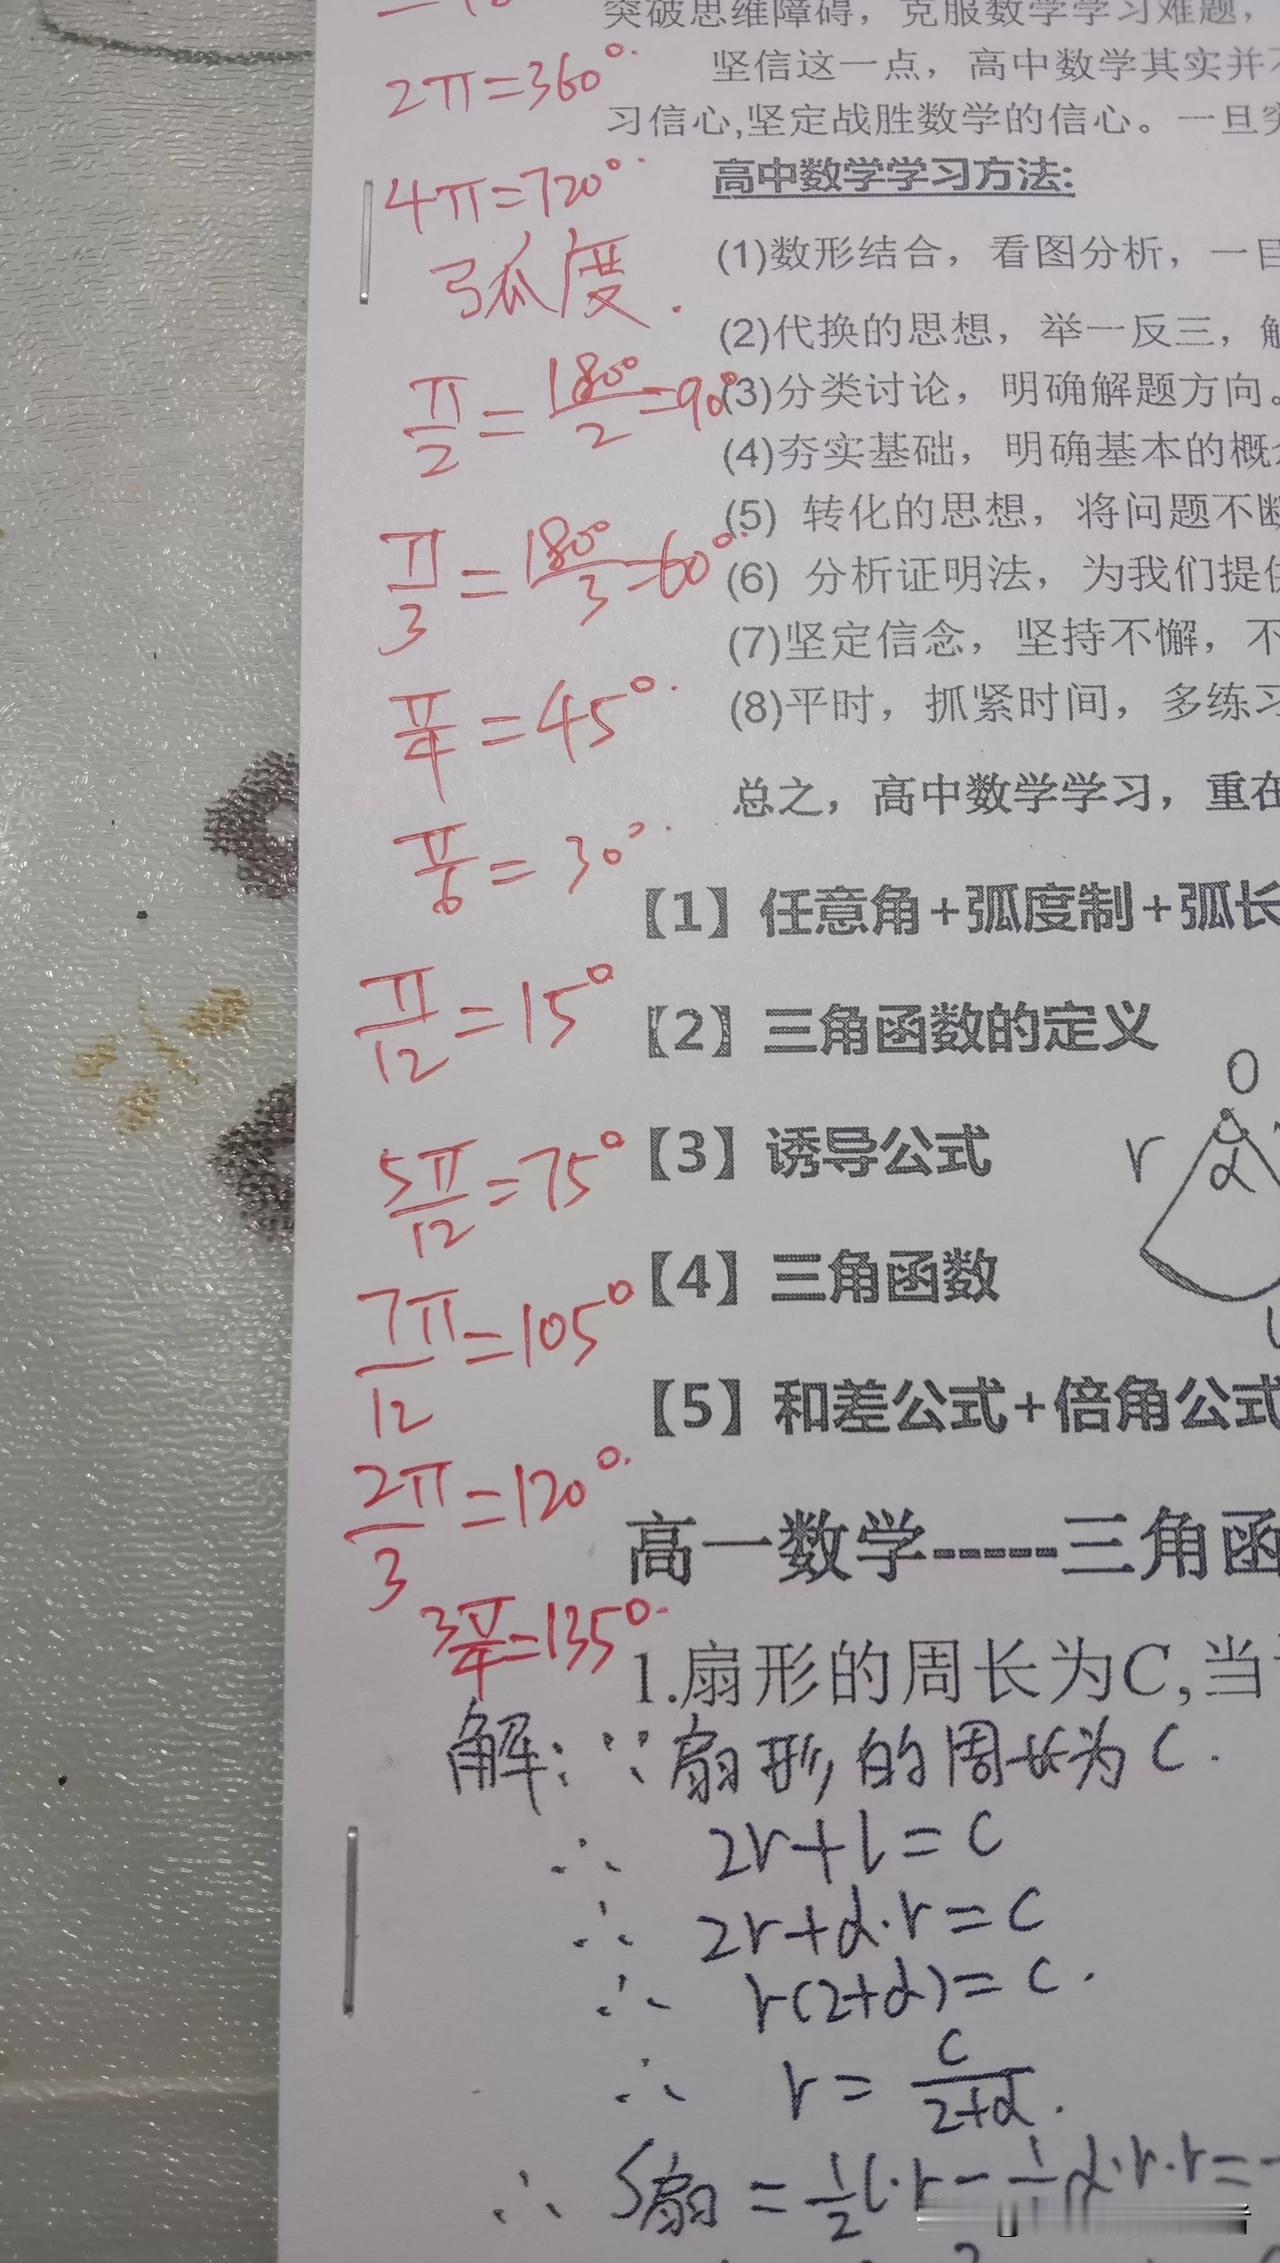 突破思维障碍，克服数学学习难题，
坚信这一点，高中数学其实并不
习信心,坚定战胜数学的信心。一旦突
高中数学学习方法:
(1)数形结合，看图分析，一目
(2)代换的思想，举一反三，解
(3)分类讨论，明确解题方向。
(4)夯实基础，明确基本的概念
(5) 转化的思想，将问题不断
(6) 分析证明法，为我们提供
(7)坚定信念，坚持不懈，不
(8)平时，抓紧时间，多练习
总之，高中数学学习，重在
2π=360°.
4π=720°.
弧度.
π/2=180°/2=90°
π/3=180°/3=60°.
π/4=45°.
π/6=30°.
π/12=15°
5π/12=75°
7π/12=105°
2π/3=120°.
3π/4=135°.
【1】任意角+弧度制+弧长
【2】三角函数的定义
【3】诱导公式
【4】三角函数
【5】和差公式+倍角公式
O
r
α
高一数学-----三角函
1.扇形的周长为C,当
解:∵扇形的周长为C.
∴ 2r+l=C
∴ 2r+α·r=C
∴ r(2+α)=C.
∴ r=C/(2+α).
∴ S扇=1/2 l·r=1/2 α·r·r=